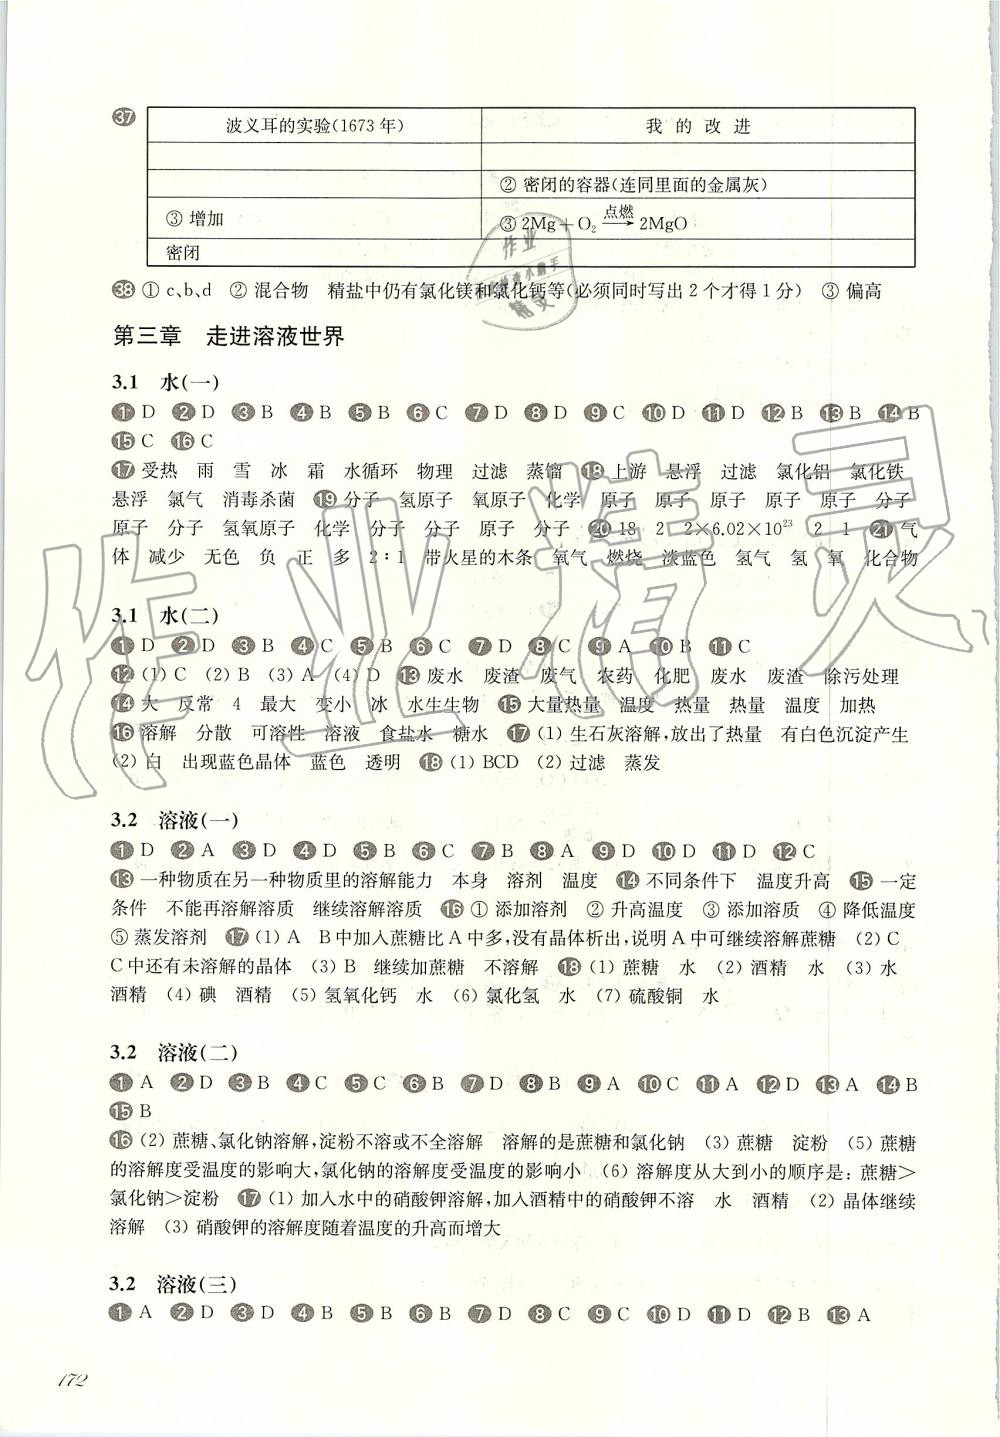 37 波义耳的实验(1673年) 我的改进
② 密闭的容器(连同里面的金属灰)
③ 增加 ③ 2Mg+O₂ 点燃→ 2MgO
密闭
38 ① c、b、d ② 混合物 精盐中仍有氯化镁和氯化钙等(必须同时写出2个才得1分) ③ 偏高
第三章 走进溶液世界
3.1 水(一)
1 D 2 D 3 B 4 B 5 B 6 C 7 D 8 D 9 C 10 D 11 D 12 B 13 B 14 B
15 C 16 C
17 受热 雨 雪 冰 霜 水循环 物理 过滤 蒸馏 18 上游 悬浮 过滤 氯化铝 氯化铁
悬浮 氯气 消毒杀菌 19 分子 氢原子 氧原子 化学 原子 原子 原子 原子 原子 分子
原子 分子 氢氧原子 化学 分子 分子 原子 分子 20 18 2 2×6.02×10²³ 2 1 21 气
体 减少 无色 负 正 多 2∶1 带火星的木条 氧气 燃烧 淡蓝色 氢气 氢 氧 化合物
3.1 水(二)
1 D 2 D 3 B 4 C 5 B 6 C 7 D 8 C 9 A 10 B 11 C
12 (1) C (2) B (3) A (4) D 13 废水 废渣 废气 农药 化肥 废水 废渣 除污处理
14 大 反常 4 最大 变小 冰 水生生物 15 大量热量 温度 热量 热量 温度 加热
16 溶解 分散 可溶性 溶液 食盐水 糖水 17 (1) 生石灰溶解,放出了热量 有白色沉淀产生
(2) 白 出现蓝色晶体 蓝色 透明 18 (1) BCD (2) 过滤 蒸发
3.2 溶液(一)
1 D 2 A 3 D 4 D 5 B 6 C 7 B 8 A 9 D 10 D 11 D 12 C
13 一种物质在另一种物质里的溶解能力 本身 溶剂 温度 14 不同条件下 温度升高 15 一定
条件 不能再溶解溶质 继续溶解溶质 16 ① 添加溶剂 ② 升高温度 ③ 添加溶质 ④ 降低温度
⑤ 蒸发溶剂 17 (1) A B中加入蔗糖比A中多,没有晶体析出,说明A中可继续溶解蔗糖 (2) C
C中还有未溶解的晶体 (3) B 继续加蔗糖 不溶解 18 (1) 蔗糖 水 (2) 酒精 水 (3) 水
酒精 (4) 碘 酒精 (5) 氢氧化钙 水 (6) 氯化氢 水 (7) 硫酸铜 水
3.2 溶液(二)
1 A 2 D 3 B 4 C 5 C 6 B 7 D 8 B 9 A 10 C 11 A 12 D 13 A 14 B
15 B
16 (2) 蔗糖、氯化钠溶解,淀粉不溶或不全溶解 溶解的是蔗糖和氯化钠 (3) 蔗糖 淀粉 (5) 蔗糖
的溶解度受温度的影响大,氯化钠的溶解度受温度的影响小 (6) 溶解度从大到小的顺序是:蔗糖>
氯化钠>淀粉 17 (1) 加入水中的硝酸钾溶解,加入酒精中的硝酸钾不溶 水 酒精 (2) 晶体继续
溶解 (3) 硝酸钾的溶解度随着温度的升高而增大
3.2 溶液(三)
1 A 2 D 3 D 4 B 5 B 6 B 7 D 8 C 9 C 10 D 11 D 12 B 13 A
172
作业精灵